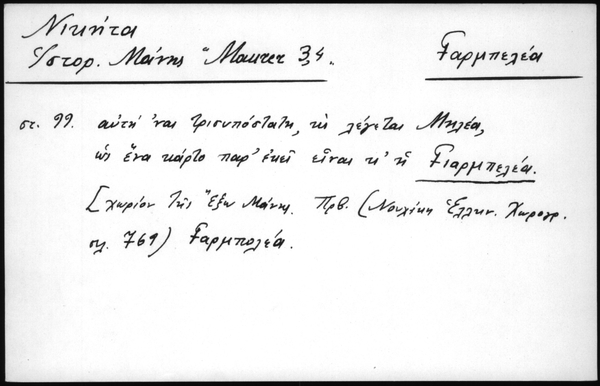 Νικήτα
Ἱστορ. Μάνης "Maurer 3,4„
Γαρμπελέα
στ. 99. αὐτὴ 'ναι τρισυπόστατη, κὶ λέγεται Μηλέα,
κι ἕνα κάρτο παρ' ἐκεῖ εἶναι κ' ἡ Γιαρμπελέα.
[χωρίον τῆς Ἔξω Μάνης. Πρβ. (Νουχάκη Ἑλλην. Χωρογρ.
σελ. 769) Γαρμπολέα.